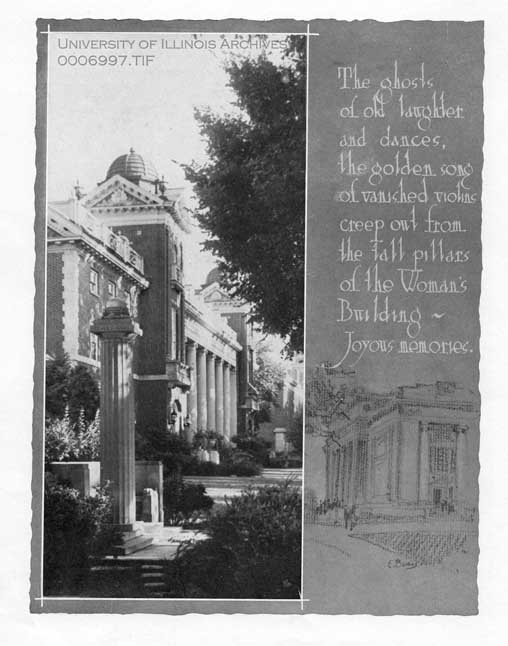 UNIVERSITY OF ILLINOIS ARCHIVES
0006997.TIF
The ghosts
of old laughter
and dances,
the golden song
of vanished violins
creep out from
the tall pillars
of the Woman's
Building ~
Joyous memories.